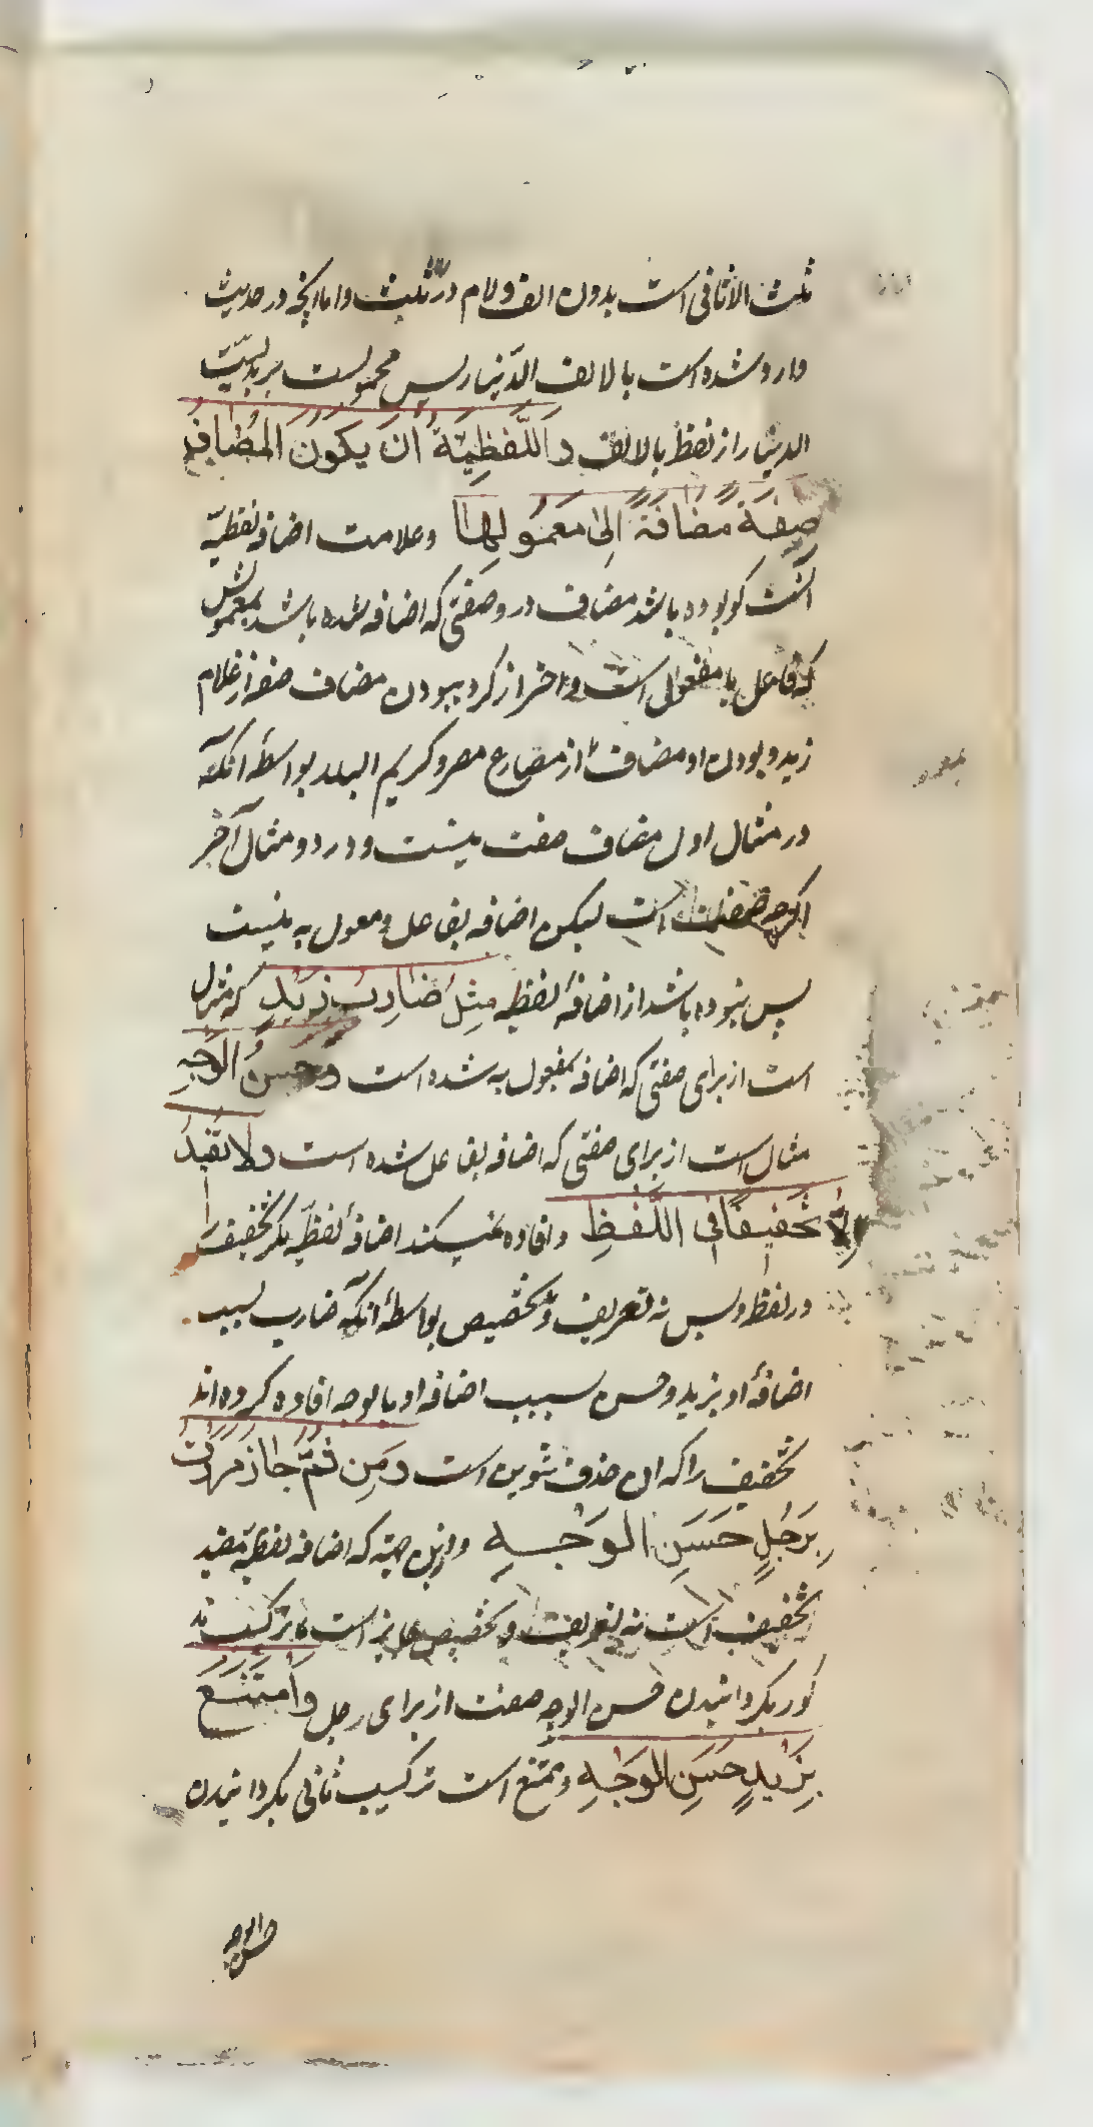 ثلث الاثافی است بدون الف و لام در ثلث و اما انچه در حدیث
وارد شده است بالالف الدّینار پس محمولست بر بدلیّت
الدینار از لفظ بالالف وَاللَّفظِیَّةُ اَن یَکُونَ المُضَافُ
صِفَةً مُضَافَةً اِلیٰ مَعمُولِهَا و علامت اضافه لفظیّه
آنست که بوده باشد مضاف در و صفتی که اضافه شده باشد بمعمولش
که فاعل یا مفعول است و احتراز کرد ببودن مضاف صفة از غلام
زید و بودن او مضاف از مصارع مصر و کریم البلد بواسطهٔ آنکه
در مثال اول مضاف صفت نیست و در دو مثال آخر
اگرچه صفت است لیکن اضافه بفاعل و مفعول به نیست
پس نبوده باشد از اضافهٔ لفظیه مِثلُ ضَارِبُ زَیدٍ که مثال
است از برای صفتی که اضافه بمفعول به شده است وَحَسَنُ الوَجهِ
مثال است از برای صفتی که اضافه بفاعل شده است وَلا تُفیدُ
اِلّا تَخفیفًا فی اللَّفظِ و افاده نمیکند اضافهٔ لفظیّه مگر تخفیف را
در لفظ و بس نه تعریف و تخصیص بواسطهٔ آنکه ضارب بسبب
اضافهٔ او بزید و حسن بسبب اضافه او بالوجه افاده کرده‌اند
تخفیف را که ان حذف تنوین است وَمِن ثَمَّ جَازَ مَرَرتُ
بِرَجُلٍ حَسَنِ الوَجهِ و ازین جهة که اضافه لفظیّه مفید
تخفیف است نه تعریف و تخصیص جایز است ترکیب
کور بگردانیدن حسن الوجه صفت از برای رجل وَامتَنَعَ
بِزَیدٍ حَسَنِ الوَجهِ و ممتنع است ترکیب ثانی بگردانیدن
حسن الوجه